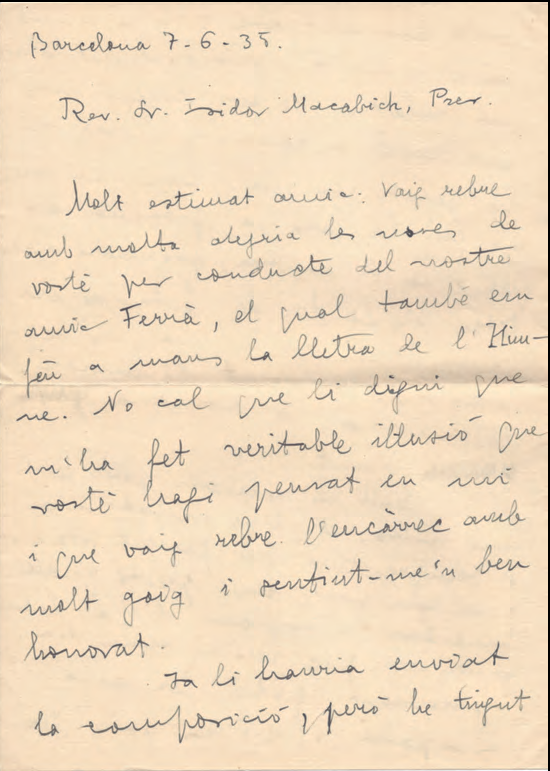 Barcelona 7-6-35.
Rev. Sr. Isidor Macabich, Prev.
Molt estimat amic: Vaig rebre
amb molta alegria les noves de
vostè per conducte del nostre
amic Ferrà, el qual també em
féu a mans la lletra de l'Him-
ne. No cal que li digui que
m'ha fet veritable il·lusió que
vostè hagi pensat en mi
i que vaig rebre l'encàrrec amb
molt goig i sentint-me'n ben
honorat.
Ja li hauria enviat
la composició, però he tingut